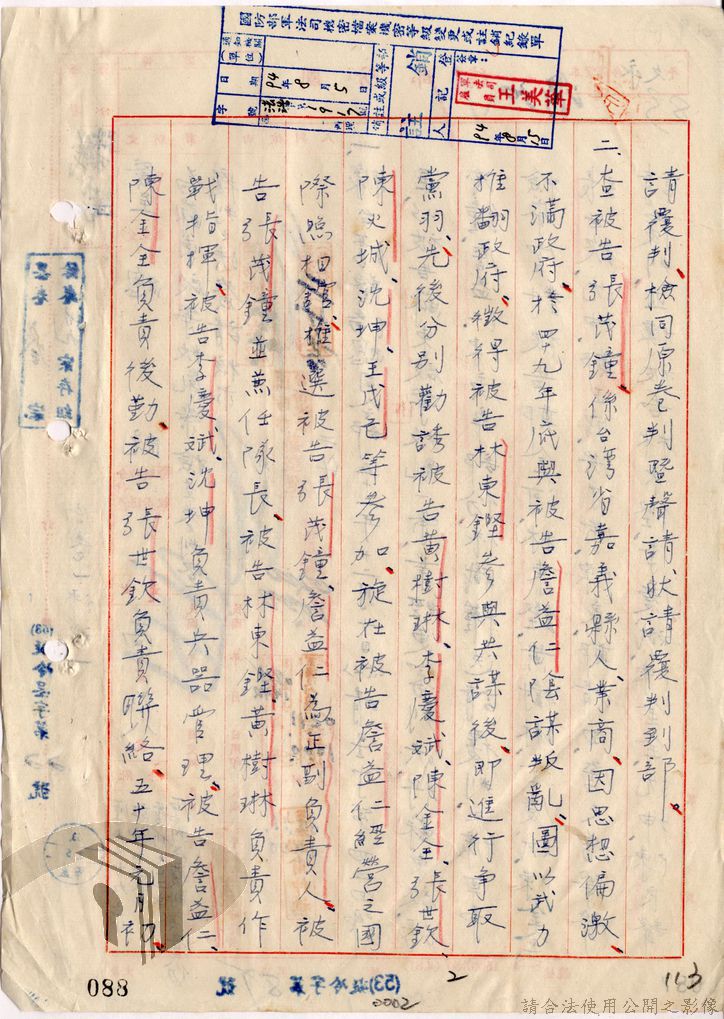 國防部軍法司機密檔案機密等級變更或註銷紀錄單
註銷
登記人
簽章
軍法司
王美華
94年8月15日
日期
94年8月5日
字號
請覆判、檢同原卷判暨聲請狀請覆判到部。
二、查被告張茂鐘係台灣省嘉義縣人、業商、因思想偏激
不滿政府、於四十九年底與被告詹益仁陰謀叛亂、圖以武力
推翻政府、徵得被告林東鏗參與共謀後、即進行爭取
黨羽、先後分別勸誘被告黃樹琳、李慶斌、陳金全、張世欽、
陳火城、沈坤、王戊己等參加、旋在被告詹益仁經營之國
際照相館推選被告張茂鐘、詹益仁為正副負責人、被
告張茂鐘並兼任隊長、被告林東鏗、黃樹琳負責作
戰指揮、被告李慶斌、沈坤負責兵器管理、被告詹益仁、
陳金全負責後勤、被告張世欽負責聯絡、五十年元月初、
088
2
2000
113
請合法使用公開之影像